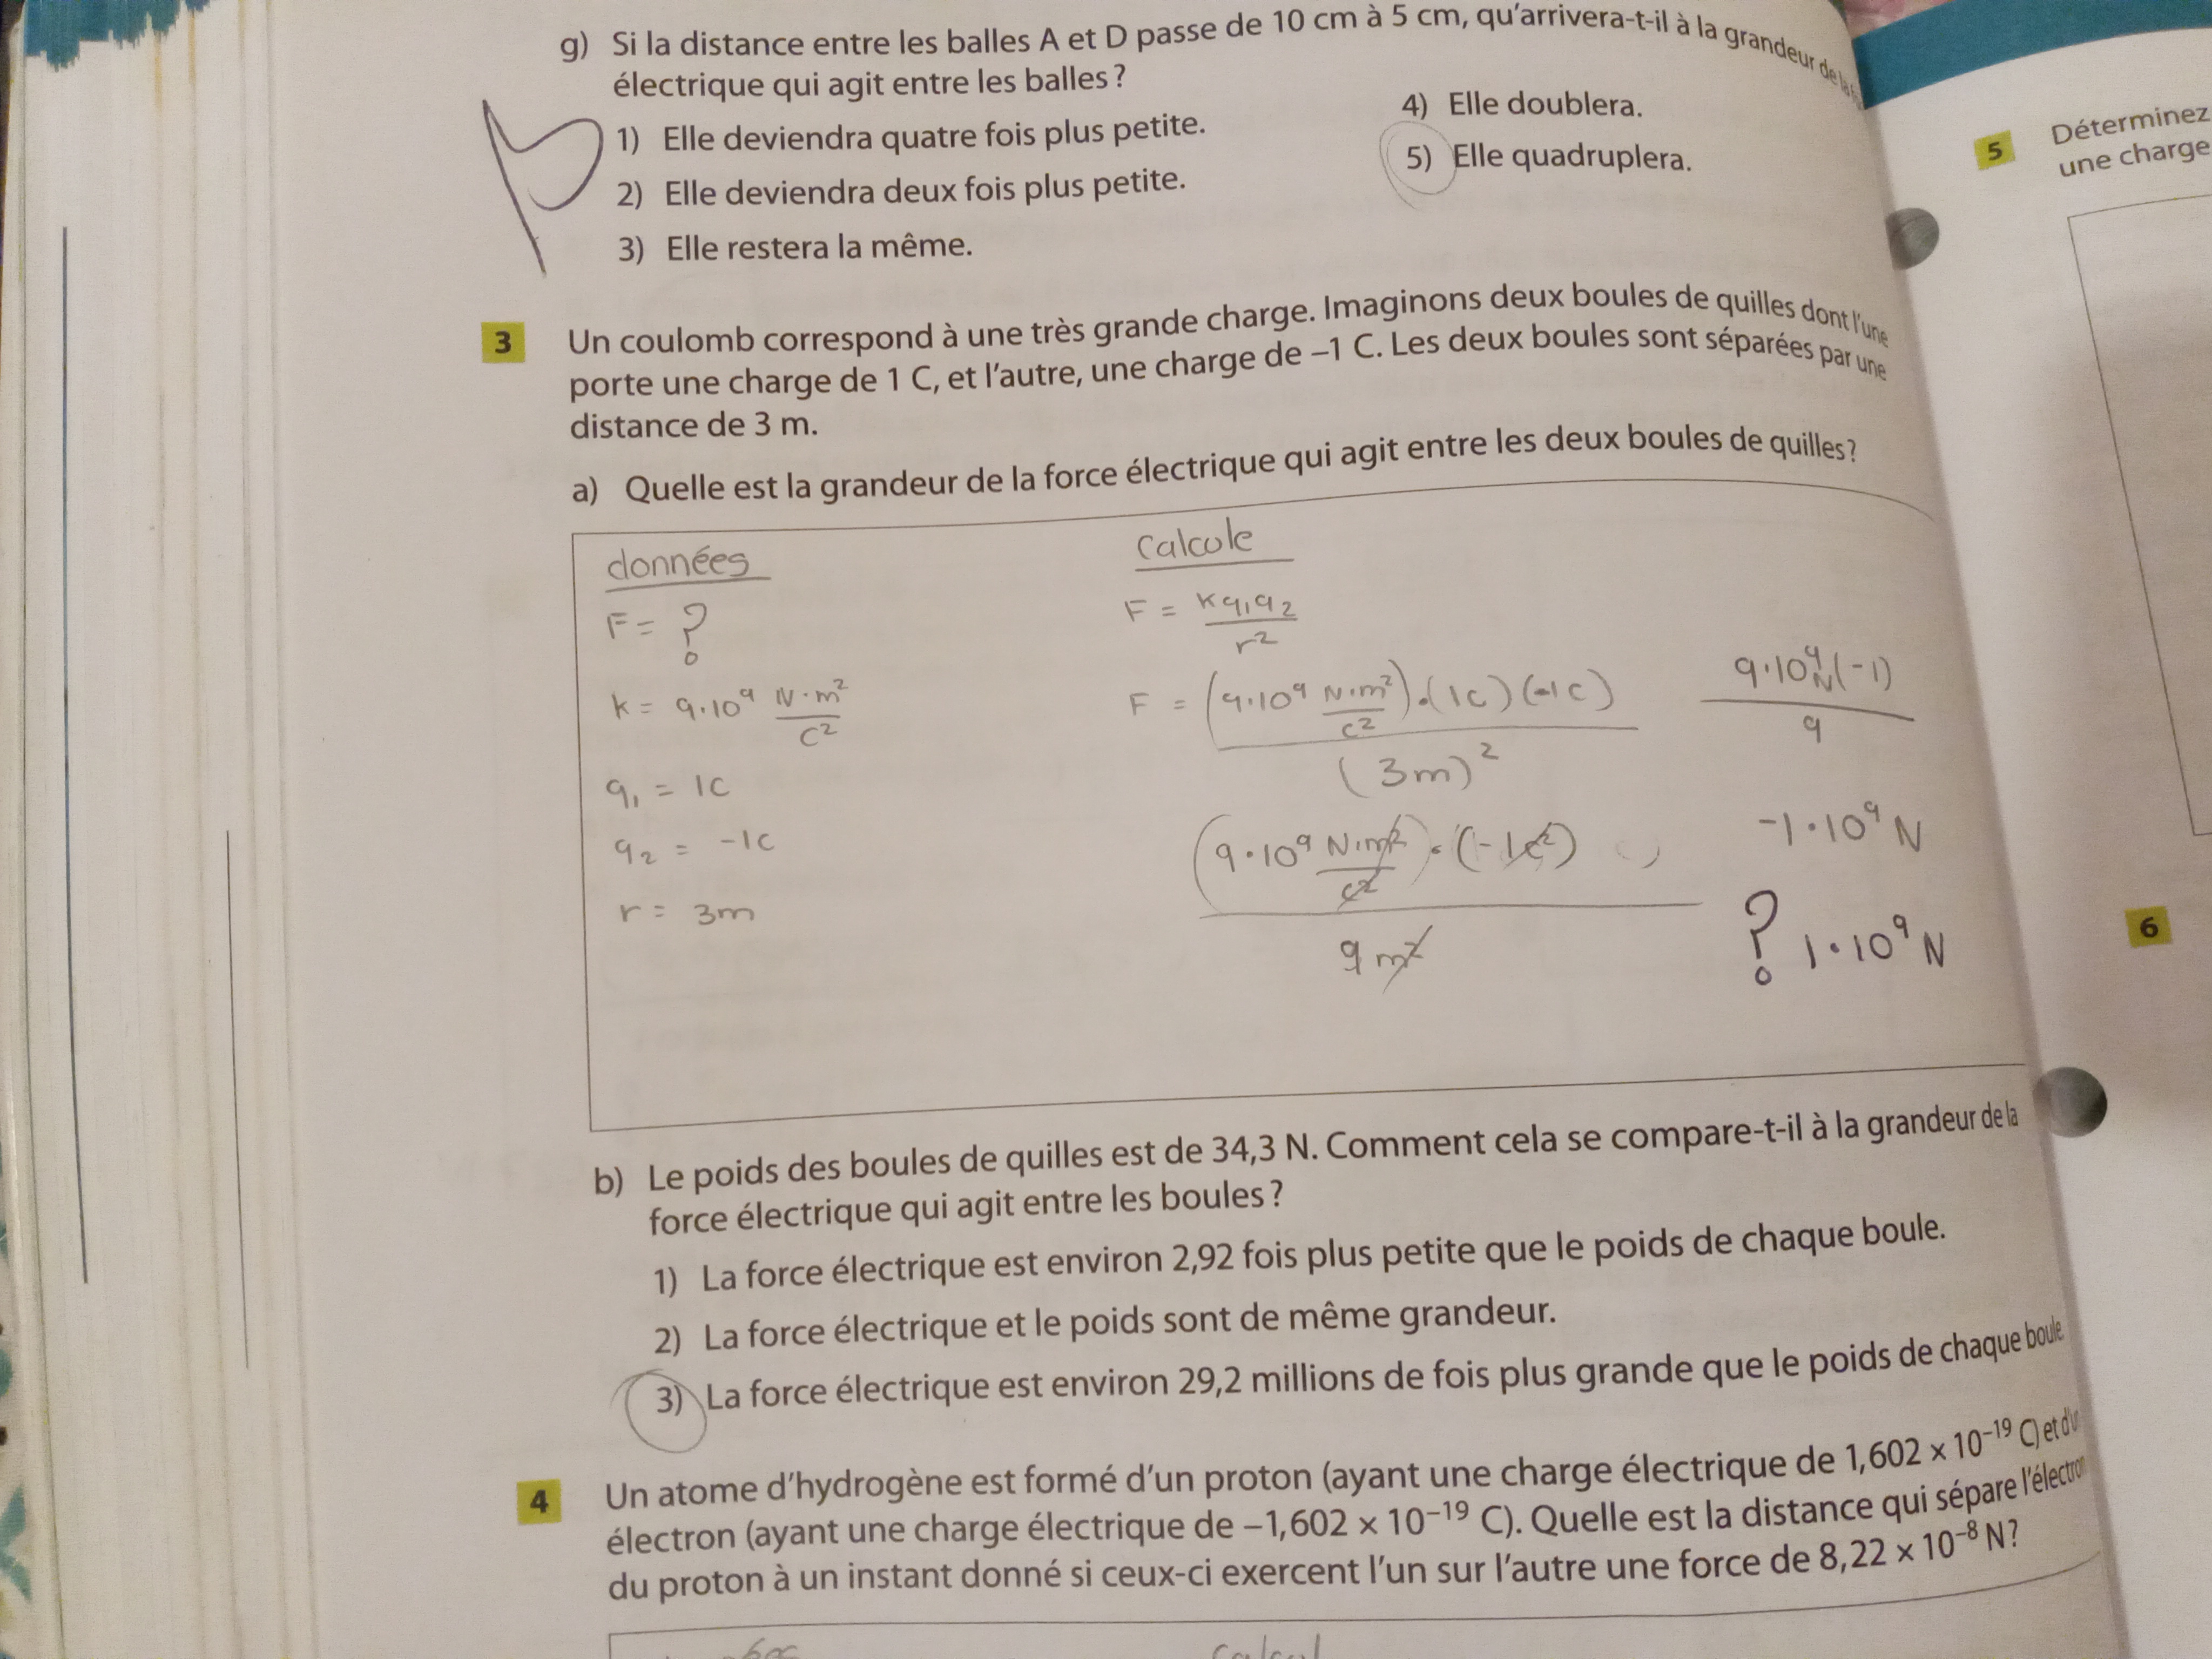 g) Si la distance entre les balles A et D passe de 10 cm à 5 cm, qu'arrivera-t-il à la grandeur de la
électrique qui agit entre les balles ?
1) Elle deviendra quatre fois plus petite.
2) Elle deviendra deux fois plus petite.
3) Elle restera la même.
4) Elle doublera.
5) Elle quadruplera.
3 Un coulomb correspond à une très grande charge. Imaginons deux boules de quilles dont l'une
porte une charge de 1 C, et l'autre, une charge de –1 C. Les deux boules sont séparées par une
distance de 3 m.
a) Quelle est la grandeur de la force électrique qui agit entre les deux boules de quilles?
données
F = ?
k = 9·10⁹ N·m²/C²
q₁ = 1C
q₂ = -1C
r = 3m
Calcule
F = kq₁q₂/r²
F = (9·10⁹ N·m²/C²)·(1C)(-1C)/(3m)²
(9·10⁹ N·m²/C²)·(-1C²)/9m²
9·10⁹N(-1)/9
-1·10⁹ N
? 1·10⁹ N
b) Le poids des boules de quilles est de 34,3 N. Comment cela se compare-t-il à la grandeur de la
force électrique qui agit entre les boules ?
1) La force électrique est environ 2,92 fois plus petite que le poids de chaque boule.
2) La force électrique et le poids sont de même grandeur.
3) La force électrique est environ 29,2 millions de fois plus grande que le poids de chaque boule.
4 Un atome d'hydrogène est formé d'un proton (ayant une charge électrique de 1,602 × 10⁻¹⁹ C) et
électron (ayant une charge électrique de –1,602 × 10⁻¹⁹ C). Quelle est la distance qui sépare l'électron
du proton à un instant donné si ceux-ci exercent l'un sur l'autre une force de 8,22 × 10⁻⁸ N?
calcul
5 Déterminez
une charge
6